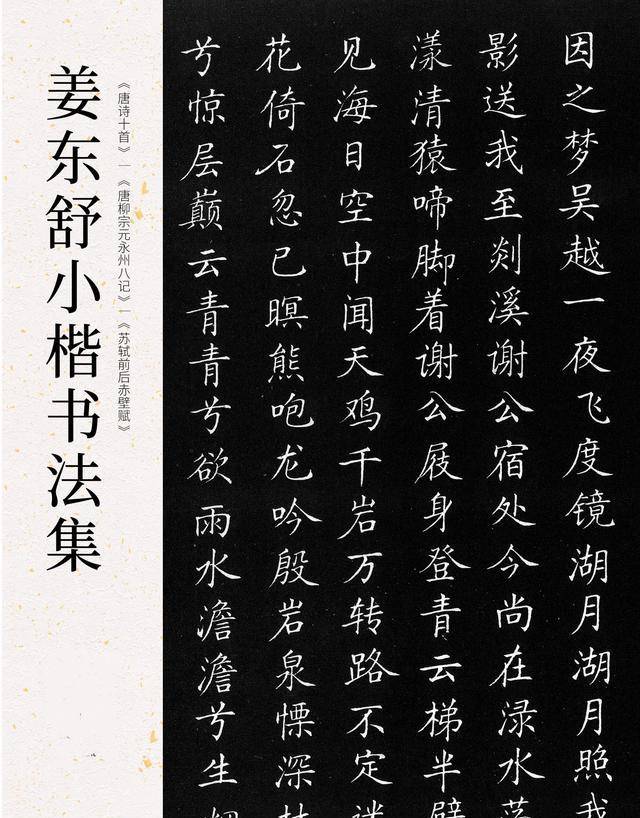 姜东舒小楷书法集
《唐诗十首》—《唐柳宗元永州八记》—《苏轼前后赤壁赋》
因之梦吴越一夜飞度镜湖月湖月照我
影送我至剡溪谢公宿处今尚在渌水荡
漾清猿啼脚着谢公屐身登青云梯半壁
见海日空中闻天鸡千岩万转路不定迷
花倚石忽已暝熊咆龙吟殷岩泉慄深林
兮惊层巅云青青兮欲雨水澹澹兮生烟